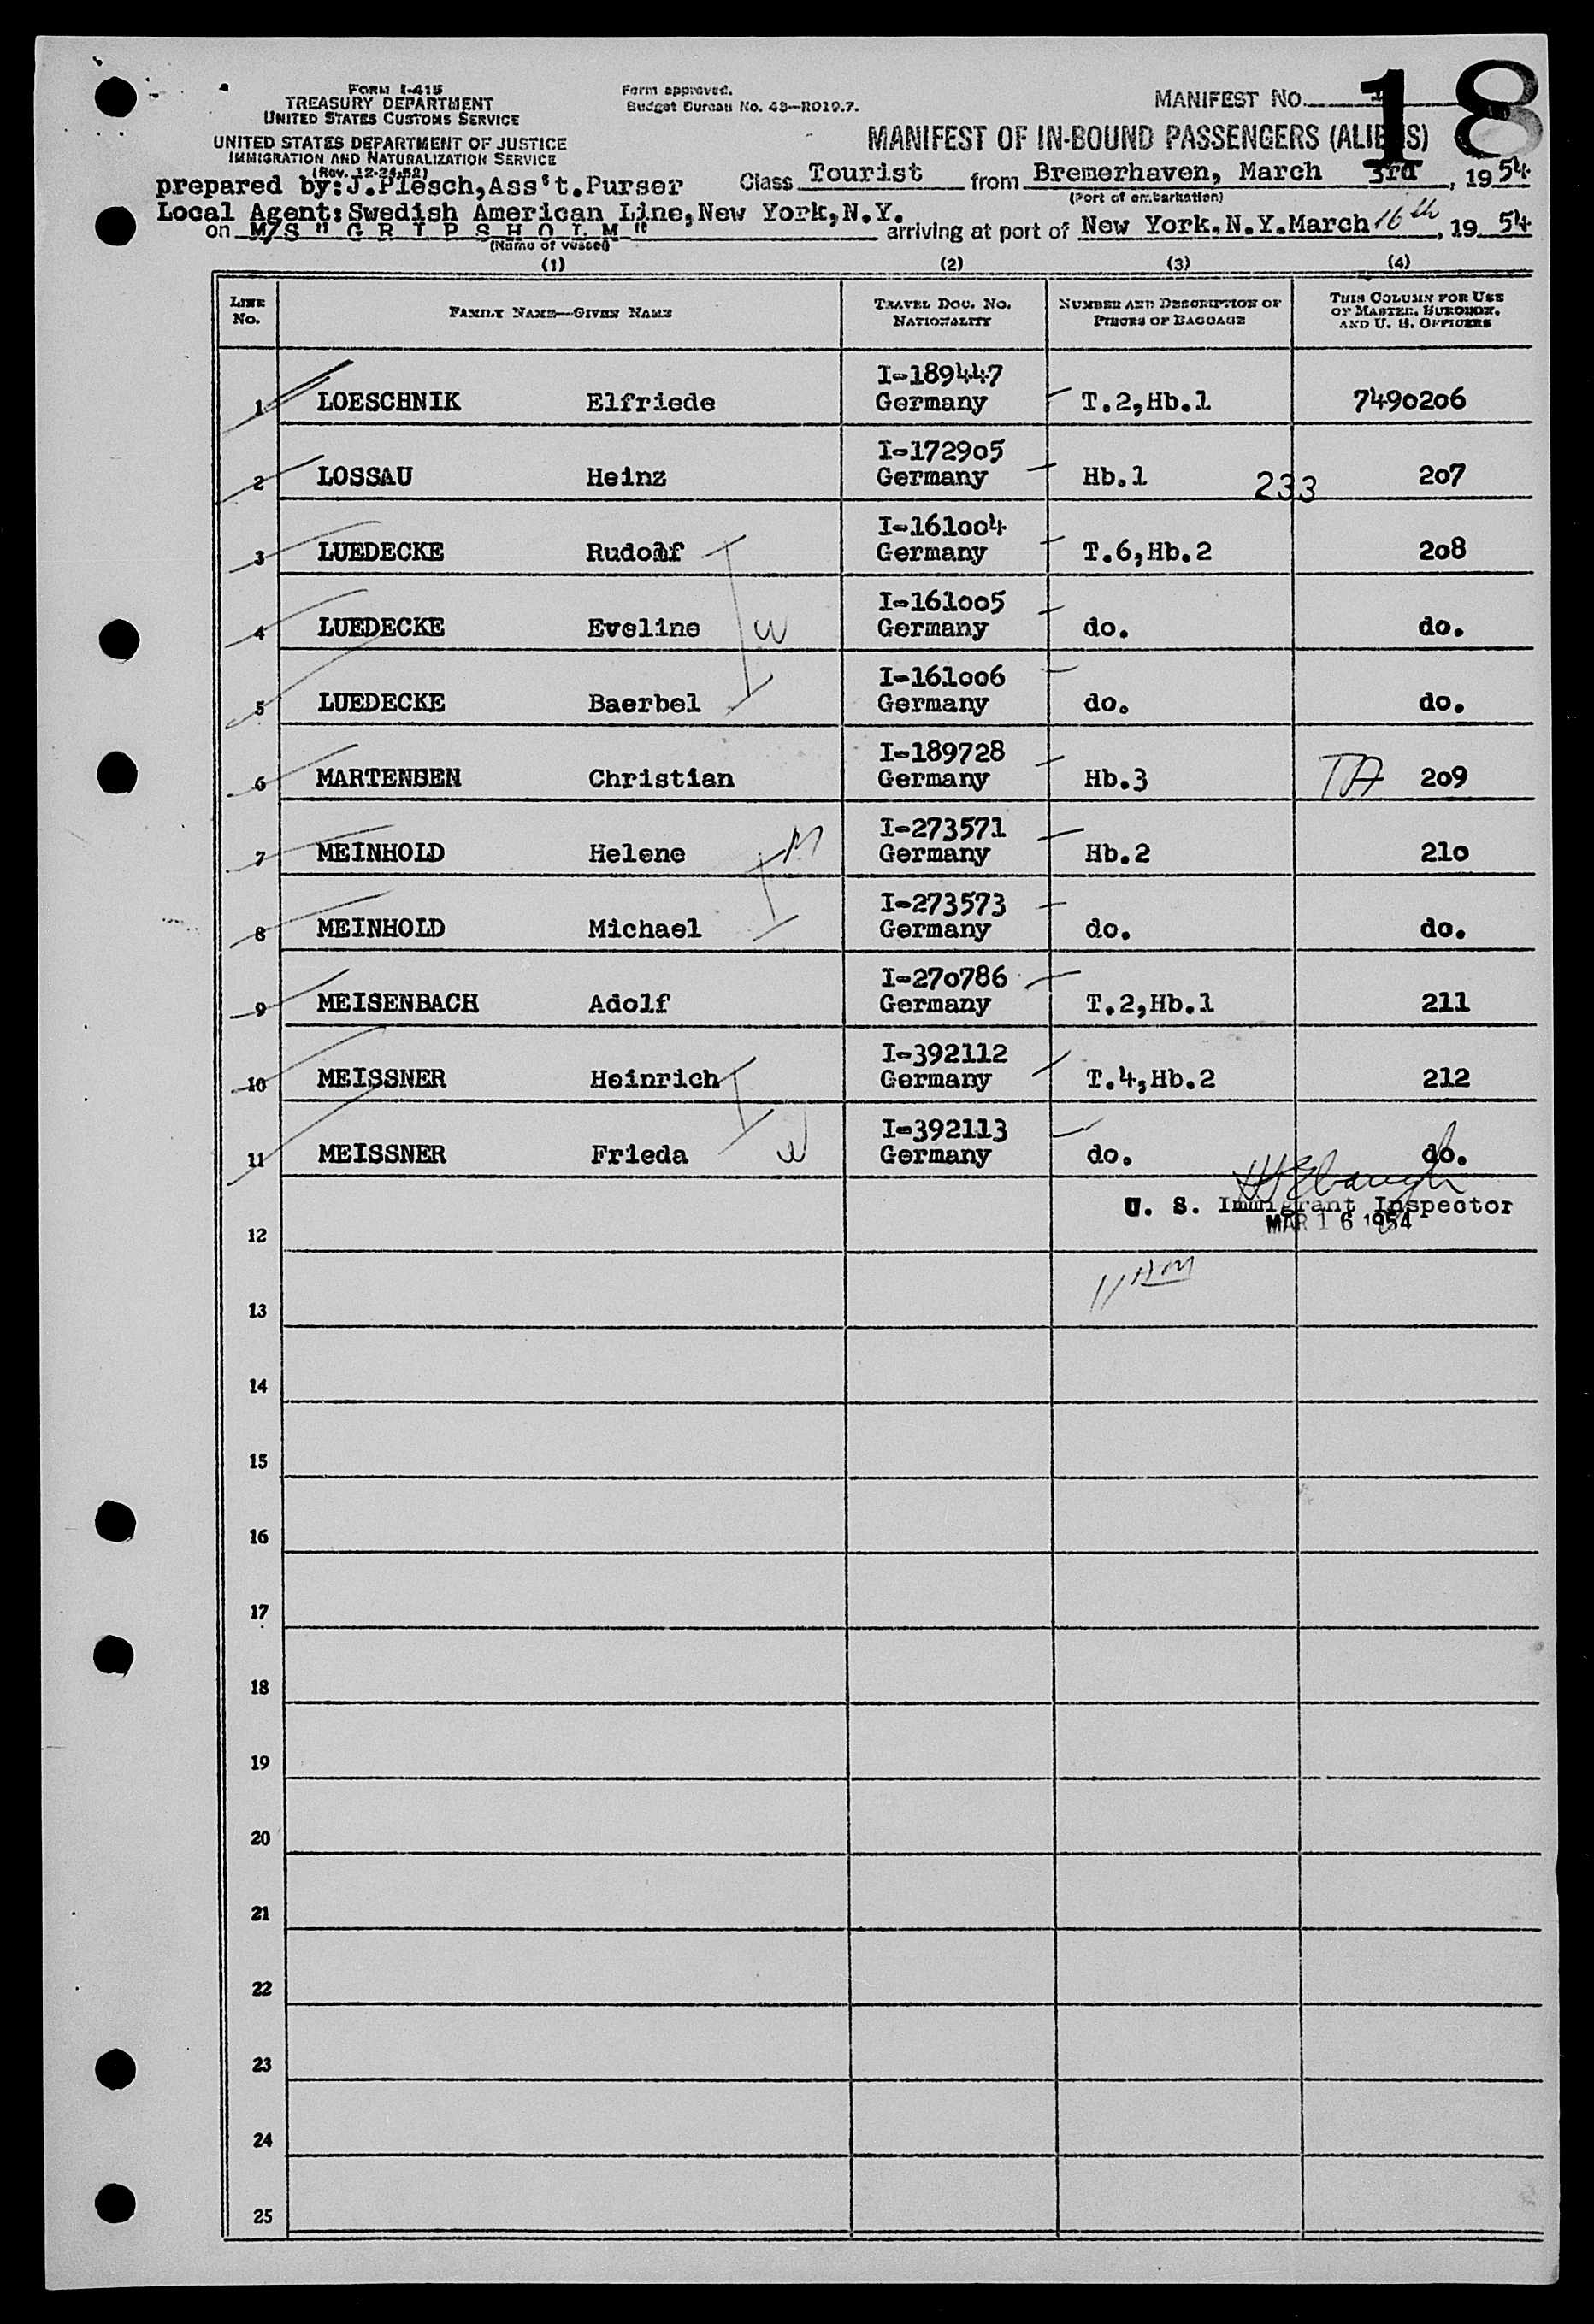 18
FORM I-415
TREASURY DEPARTMENT
UNITED STATES CUSTOMS SERVICE
UNITED STATES DEPARTMENT OF JUSTICE
IMMIGRATION AND NATURALIZATION SERVICE
(Rev. 12-24-52)
Form approved.
Budget Bureau No. 43-R019.7.
MANIFEST NO.
MANIFEST OF IN-BOUND PASSENGERS (ALIENS)
prepared by: J.Plesch,Ass't.Purser
Class Tourist from Bremerhaven, March 3rd, 1954
(Port of embarkation)
Local Agent: Swedish American Line,New York,N.Y.
on M/S "G R I P S H O L M" arriving at port of New York,N.Y.March 16th, 1954
(Name of vessel)
(1) (2) (3) (4)
LINE NO. FAMILY NAME—GIVEN NAME TRAVEL DOC. NO. NATIONALITY NUMBER AND DESCRIPTION OF PIECES OF BAGGAGE THIS COLUMN FOR USE OF MASTER, SURGEON, AND U. S. OFFICERS
I-189447
1 LOESCHNIK Elfriede Germany T.2,Hb.1 7490206
I-172905
2 LOSSAU Heinz Germany Hb.1 233 207
I-161004
3 LUEDECKE Rudolf Germany T.6,Hb.2 208
I-161005
4 LUEDECKE Eveline W Germany do. do.
I-161006
5 LUEDECKE Baerbel Germany do. do.
I-189728
6 MARTENSEN Christian Germany Hb.3 TA 209
I-273571
7 MEINHOLD Helene M Germany Hb.2 210
I-273573
8 MEINHOLD Michael Germany do. do.
I-270786
9 MEISENBACH Adolf Germany T.2,Hb.1 211
I-392112
10 MEISSNER Heinrich Germany T.4,Hb.2 212
I-392113
11 MEISSNER Frieda W Germany do. do.
U. S. Immigrant Inspector
MAR 16 1954
12
13
14
15
16
17
18
19
20
21
22
23
24
25